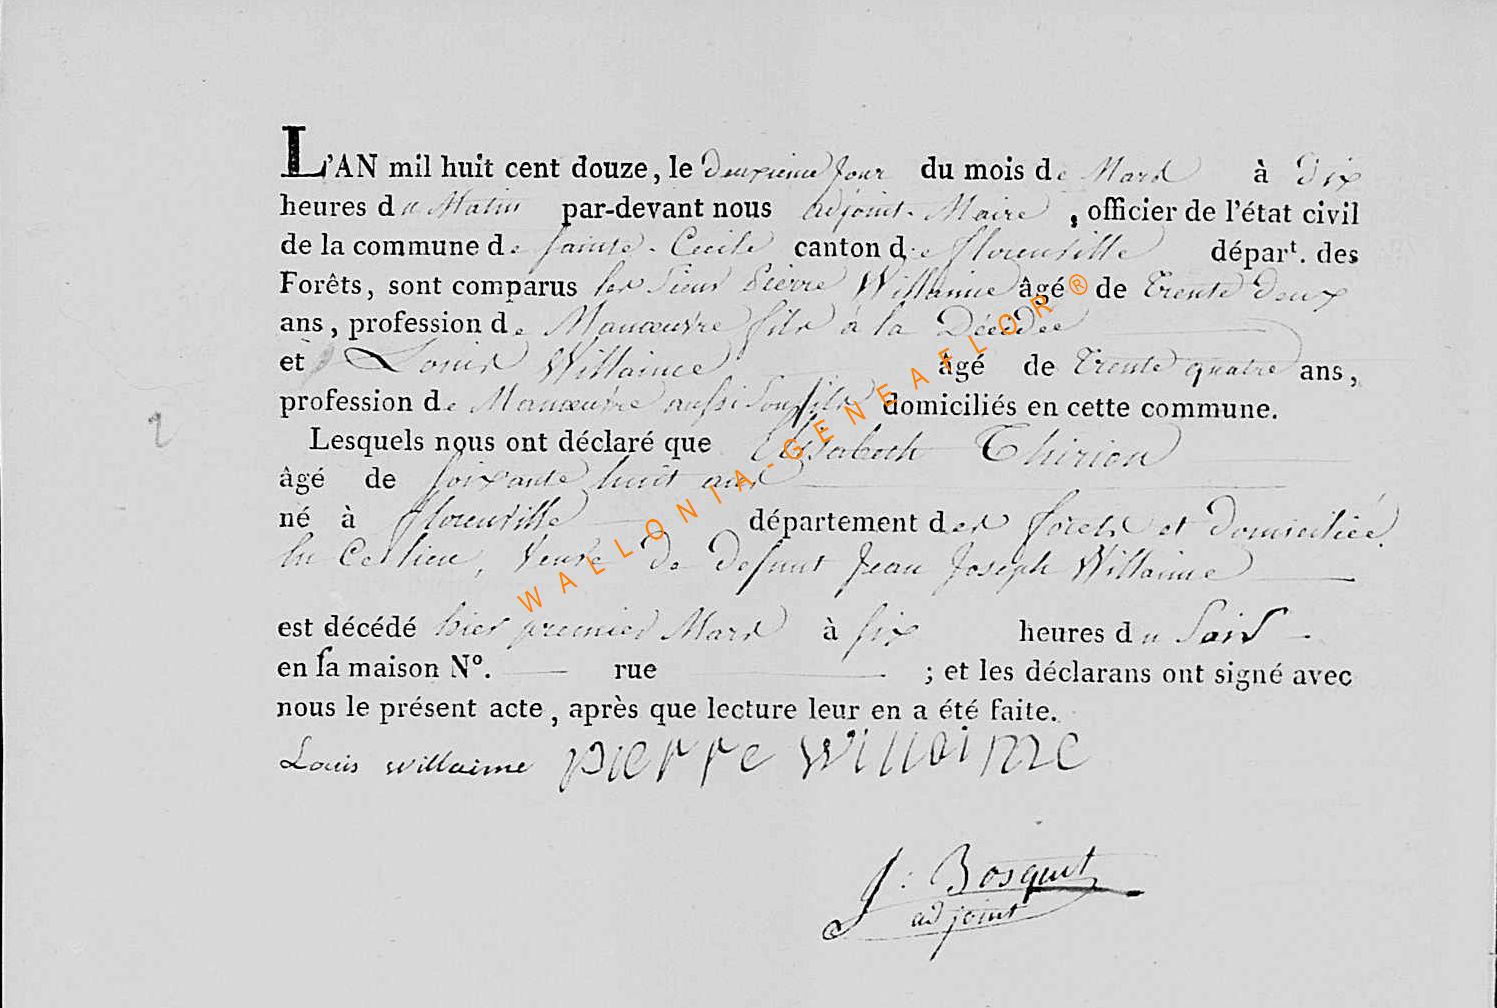 L'AN mil huit cent douze, le deuxieme Jour du mois de Mars à dix
heures du Matin par-devant nous adjoint-Maire, officier de l'état civil
de la commune de sainte-Cecile canton de florenvilleépart. des
Forêts, sont comparus les Sieur Pierre Willaime âgé de trente deux
ans, profession de Manœuvre fils à la Décédée
et Louis Willaime âgé de trente quatre ans,
profession de Manœuvre aussi son fils domiciliés en cette commune.
Lesquels nous ont déclaré que Elisabeth Thirion
âgé de soixante huit ans
né à florenville département des forets et domiciliée
en Ce lieu, Veuve de defunt Jean Joseph Willaime
est décédé hier premier Mars à six heures du Soir
en sa maison N°. rue ; et les déclarans ont signé avec
nous le présent acte, après que lecture leur en a été faite.
Louis willaime pierre willaime
J: Bosquet
adjoint
2
WALLONIA-GENEAFLOR®